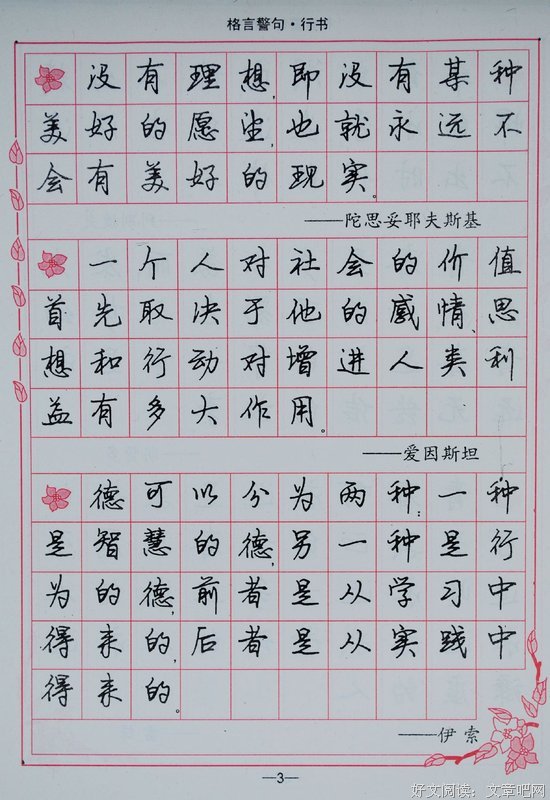 格言警句·行书
没有理想,即没有某种
美好的愿望,也就永远不
会有美好的现实。
——陀思妥耶夫斯基
一个人对社会的价值
首先取决于他的感情、思
想和行动对增进人类利
益有多大作用。
——爱因斯坦
德可以分为两种:一种
是智慧的德,另一种是行
为的德,前者是从学习中
得来的,后者是从实践中
得来的。
——伊索
—3—
好文阅读:文章吧网